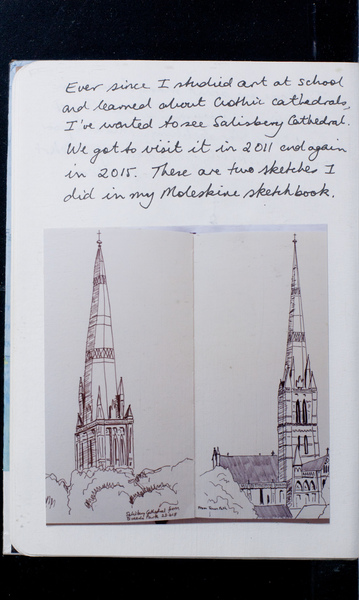 Ever since I studied art at school
and learned about Gothic cathedrals,
I've wanted to see Salisbery Cathedral.
We got to visit it in 2011 and again
in 2015. These are two sketches I
did in my Moleskine sketchbook.
Salisbury Cathedral from